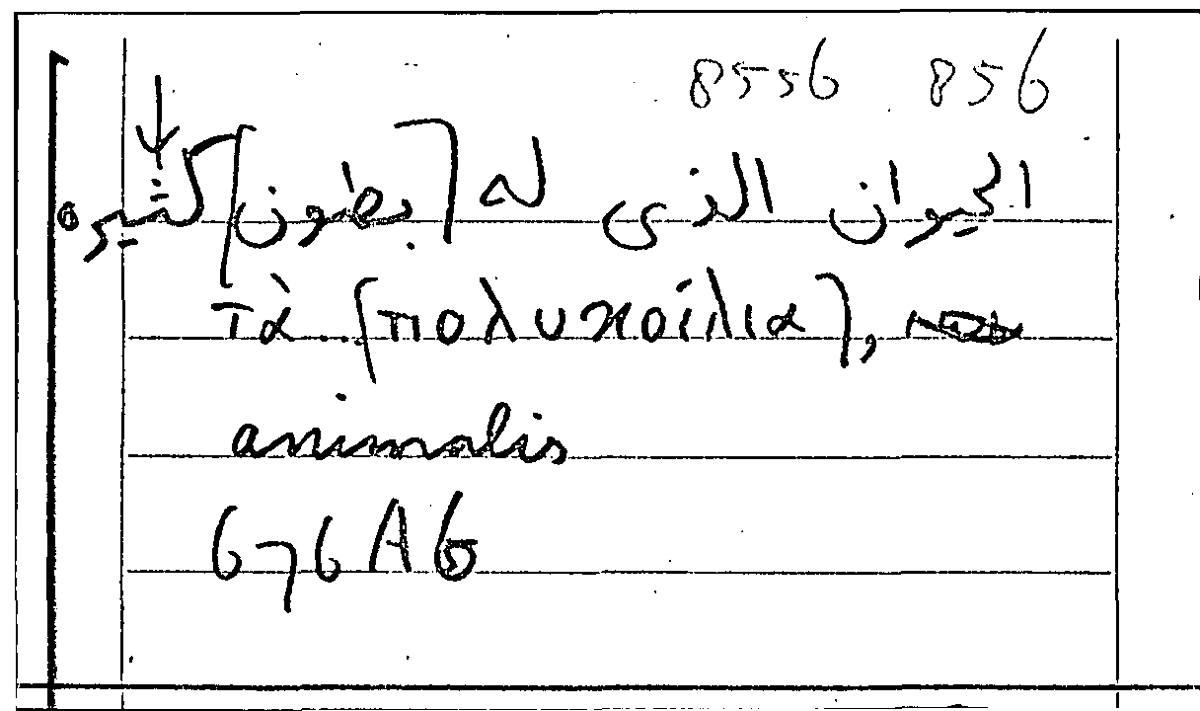 8556 856
الحيوان الذى له [بطون] كثيره
τὰ ... [πολυκοίλια],
animalis
676 A6